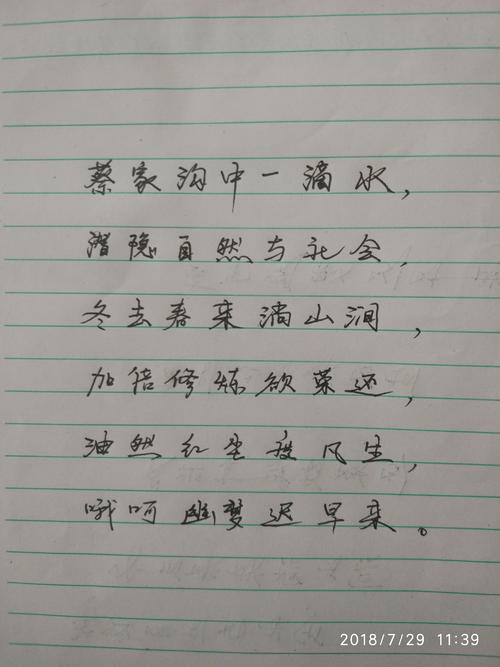 蔡家沟中一滴水,
潜隐自然与社会,
冬去春来淌山涧,
加倍修炼欲荣还,
油然红尘度风生,
哦呵幽梦迟早来。
2018/7/29 11:39